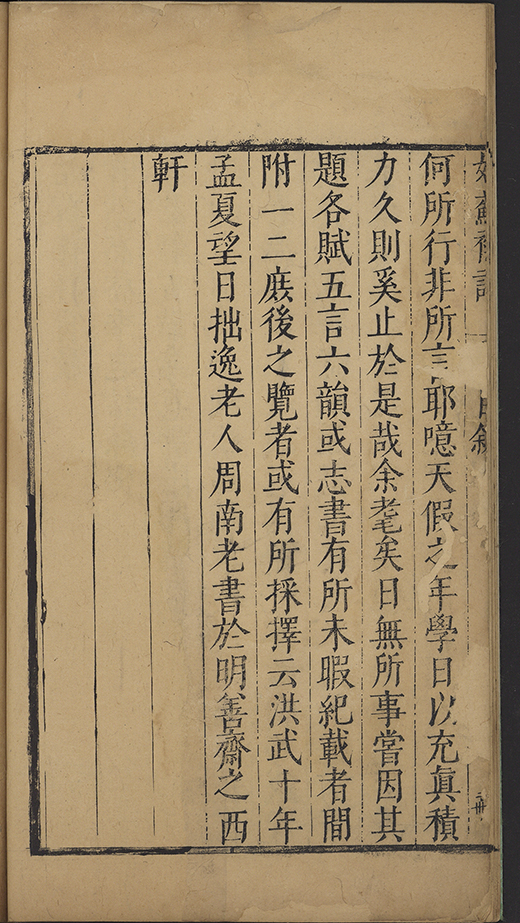 姑蘇雜詠　自叙　二
何所行非所言耶噫天假之年學日以充眞積
力久則奚止於是哉余耄矣日無所事嘗因其
題各賦五言六韻或志書有所未暇紀載者間
附一二庶後之覽者或有所採擇云洪武十年
孟夏望日拙逸老人周南老書於明善齋之西
軒